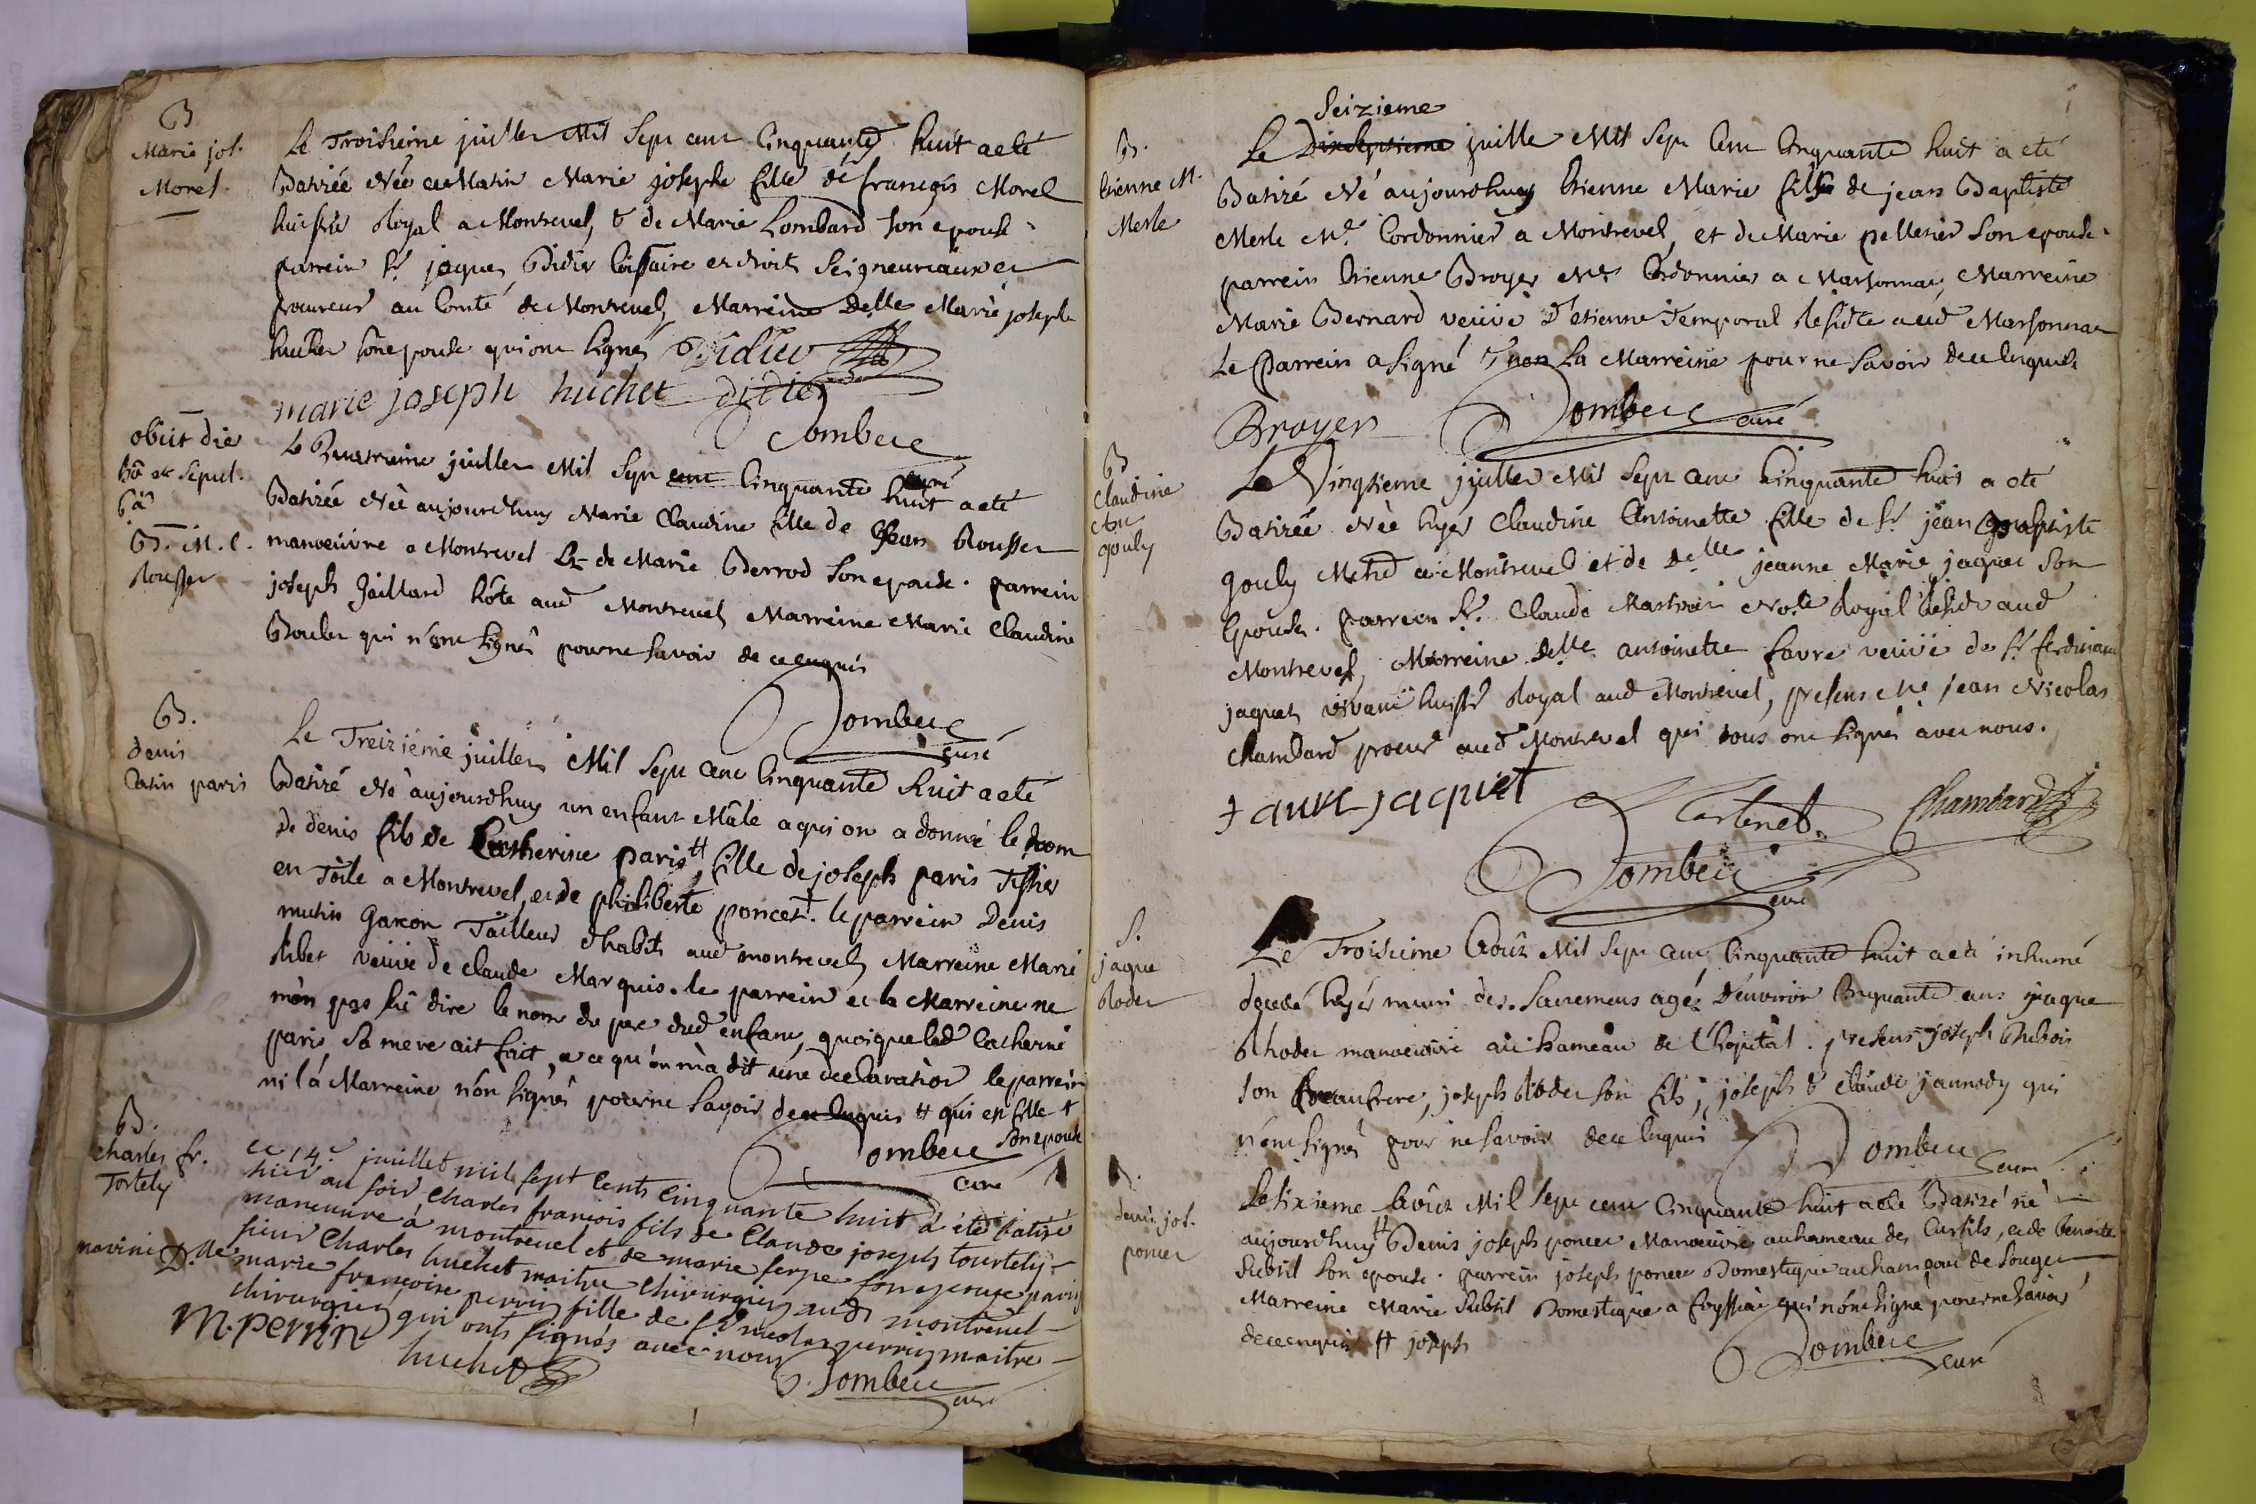 B
Marie jos.
Morel
Le Troisieme juillet Mil Sept cent Cinquante huit a eté
Batizée Née ce Matin Marie josephe fille de françois Morel
huissier Royal a Montrevel, & de Marie Lombard Son epouse
parrein Sr. jaques Didier Comissaire es droits Seigneuriaux et
procureur au Comté de Montrevel, Marreine Delle Marie josephe
huchet Son epouse qui ont Signés Didier
marie joseph huchet didier
Dombece
curé
obiit die
6â et Sepul.
B. M. C.
Rousset
Le Quatrieme juillet Mil Sept cent Cinquante huit a eté
Batizée Née aujourdhuy Marie Claudine fille de Jean Rousset
manoeuvre a Montrevel & de Marie Berrod Son epouse. parrein
joseph Gaillard hôte aud Montrevel Marreine Marie Claudine
Boulet qui n'ont Signés pour ne Savoir de ce enquis
Dombece
curé
B.
denis
Catin paris
Le Treizième juillet Mil Sept cent Cinquante huit a eté
Batizé Né aujourdhuy un enfant Mâle a qui on a donné le nom
de denis fils de Catherine paris # fille de joseph paris Tissier
en Toile a Montrevel, et de philiberte poncet + le parrein Denis
mutin Garcon Tailleur d'habits aud montrevel, Marreine Marie
Ribet veuve de claude Marquis. le parrein et la Marreine ne
m'on pas Sû dire le nom du pere dud enfant, quoique lad Catherine
paris Sa mere ait fait, a ce qu'on m'a dit une declaration le parrein
ni la Marreine n'on Signés pour ne Savoir de ce enquis # qui est fille +
Son epouse
Dombece
curé
B.
charles fr.
Tortely
ce 14e. juillet mil sept cents cinquante huit a été batisé
hier au soir Charles francois fils de Claude joseph tourtely
maneuvre à montrevel et de marie serpe son epouse parin
sieur Charles huchet maitre chirurgien aud montrevel
marine Dlle marie francoise perrin fille de sr nicolas perrin maitre
chirurgien qui onts signés avec nous
M. perrin
huchet
Dombece
curé
B.
Etienne M.
Merle
Seizieme
Le Dixseptieme juillet Mil Sept Cent Cinquante huit a eté
Batizé Né aujourdhuy Etienne Marie fils de jean Baptiste
Merle Me. Cordonnier a Montrevel, et de Marie pelletier Son epouse.
parrein Etienne Broyer Me Cordonnier a Marsonnas, Marreine
Marie Bernard veuve D'etienne Temporal Residte aud Marsonnas
Le Parrein a Signé & non La Marreine pour ne Savoir de ce enquis
Broyer Dombece
curé
B
Claudine
Ant.
gouly
Le Vingtieme juillet Mil Sept cent Cinquante huit a eté
Batizée Née hyer Claudine Antoinette fille de Sr. jean Baptiste
gouly Mchd a Montrevel et de Delle jeanne Marie jaquet Son
Epouse. parrein Sr. Claude Martinet Nore Royal Reside aud
Montrevel, Marreine Delle antoinette favre veuve de Sr. ferdinand
jaquet vivant huissier Royal aud Montrevel, presens Me jean Nicolas
Chambard procur aud Montrevel qui tous ont Signés avec nous.
favre jaquet Martinet Chambard
Dombece
curé
S.
jaque
Rodet
Le Troisieme Août Mil Sept cent Cinquante huit a eté inhumé
decedé hyer muni des Sacremens agé D'environ Cinquante ans jaque
Rhodet manoeuvre au hameau de L'hopital. presens joseph
son beaufrere, joseph Rodet Son fils, joseph & Claude jannody qui
n'ont Signés pour ne Savoir de ce enquis
Dombece
curé
B.
denis jos.
poncet
Le Sixieme Août Mil Sept cent Cinquante huit a eté Batizé né
aujourdhuy # Denis joseph poncet Manoeuvre au hameau des Cursils, et de benoite
Subtil Son epouse. parrein joseph poncet Domestique au hameau de Souget
Marreine Marie Subtil Domestique a foyssiat qui n'ont Signé pour ne Savoir
de ce enquis # joseph
Dombece
curé